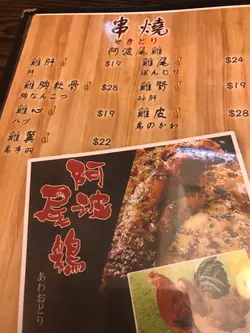 串燒
やきとり
阿波尾雞
雞肝 $19
肝
雞尾 $24
ぼんじり
雞胸軟骨 $28
胸なんこつ
雞腎 $
砂肝
雞心 $19
ハツ
雞皮 $28
鳥のかわ
雞翼 $22
阿波
尾鶏
あわおどり